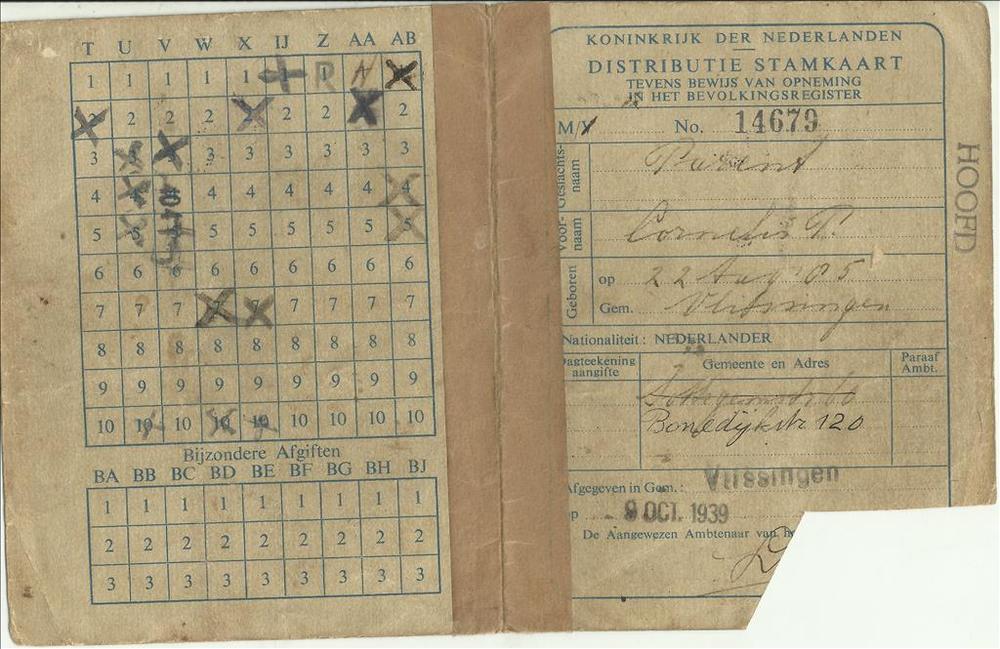 T U V W X IJ Z AA AB
1 1 1 1 1 R N
2 2 2 2 2 2
3 3 3 3 3 3 3
4 4 4 4 4 4 4
5 5 5 5 5 5 5
6 6 6 6 6 6 6 6 6
7 7 7 7 7 7 7 7 7
8 8 8 8 8 8 8 8 8
9 9 9 9 9 9 9 9 9
10 10 10 10 10 10 10 10 10
Bijzondere Afgiften
BA BB BC BD BE BF BG BH BJ
1 1 1 1 1 1 1 1 1
2 2 2 2 2 2 2 2 2
3 3 3 3 3 3 3 3 3
KONINKRIJK DER NEDERLANDEN
DISTRIBUTIE STAMKAART
TEVENS BEWIJS VAN OPNEMING
IN HET BEVOLKINGSREGISTER
M/V No. 14679
Geslachts-
naam Parent
Voor-
naam Cornelis P.
Geboren op 22 Aug '05
Gem. Vlissingen
Nationaliteit: NEDERLANDER
Dagteekening
aangifte
Gemeente en Adres
Paraaf
Ambt.
Bonedijkstr 120
Afgegeven in Gem.: Vlissingen
op - 9 OCT. 1939
De Aangewezen Ambtenaar van
HOOFD